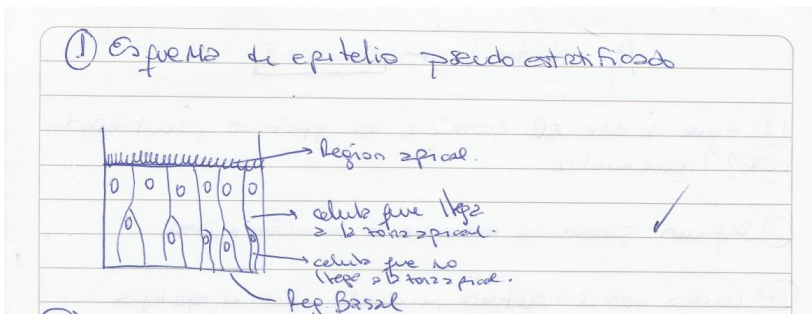 ① Esquema de epitelio pseudo estratificado
Region apical.
celula que llega
a la zona apical.
celula que no
llega a la zona apical.
Reg. Basal